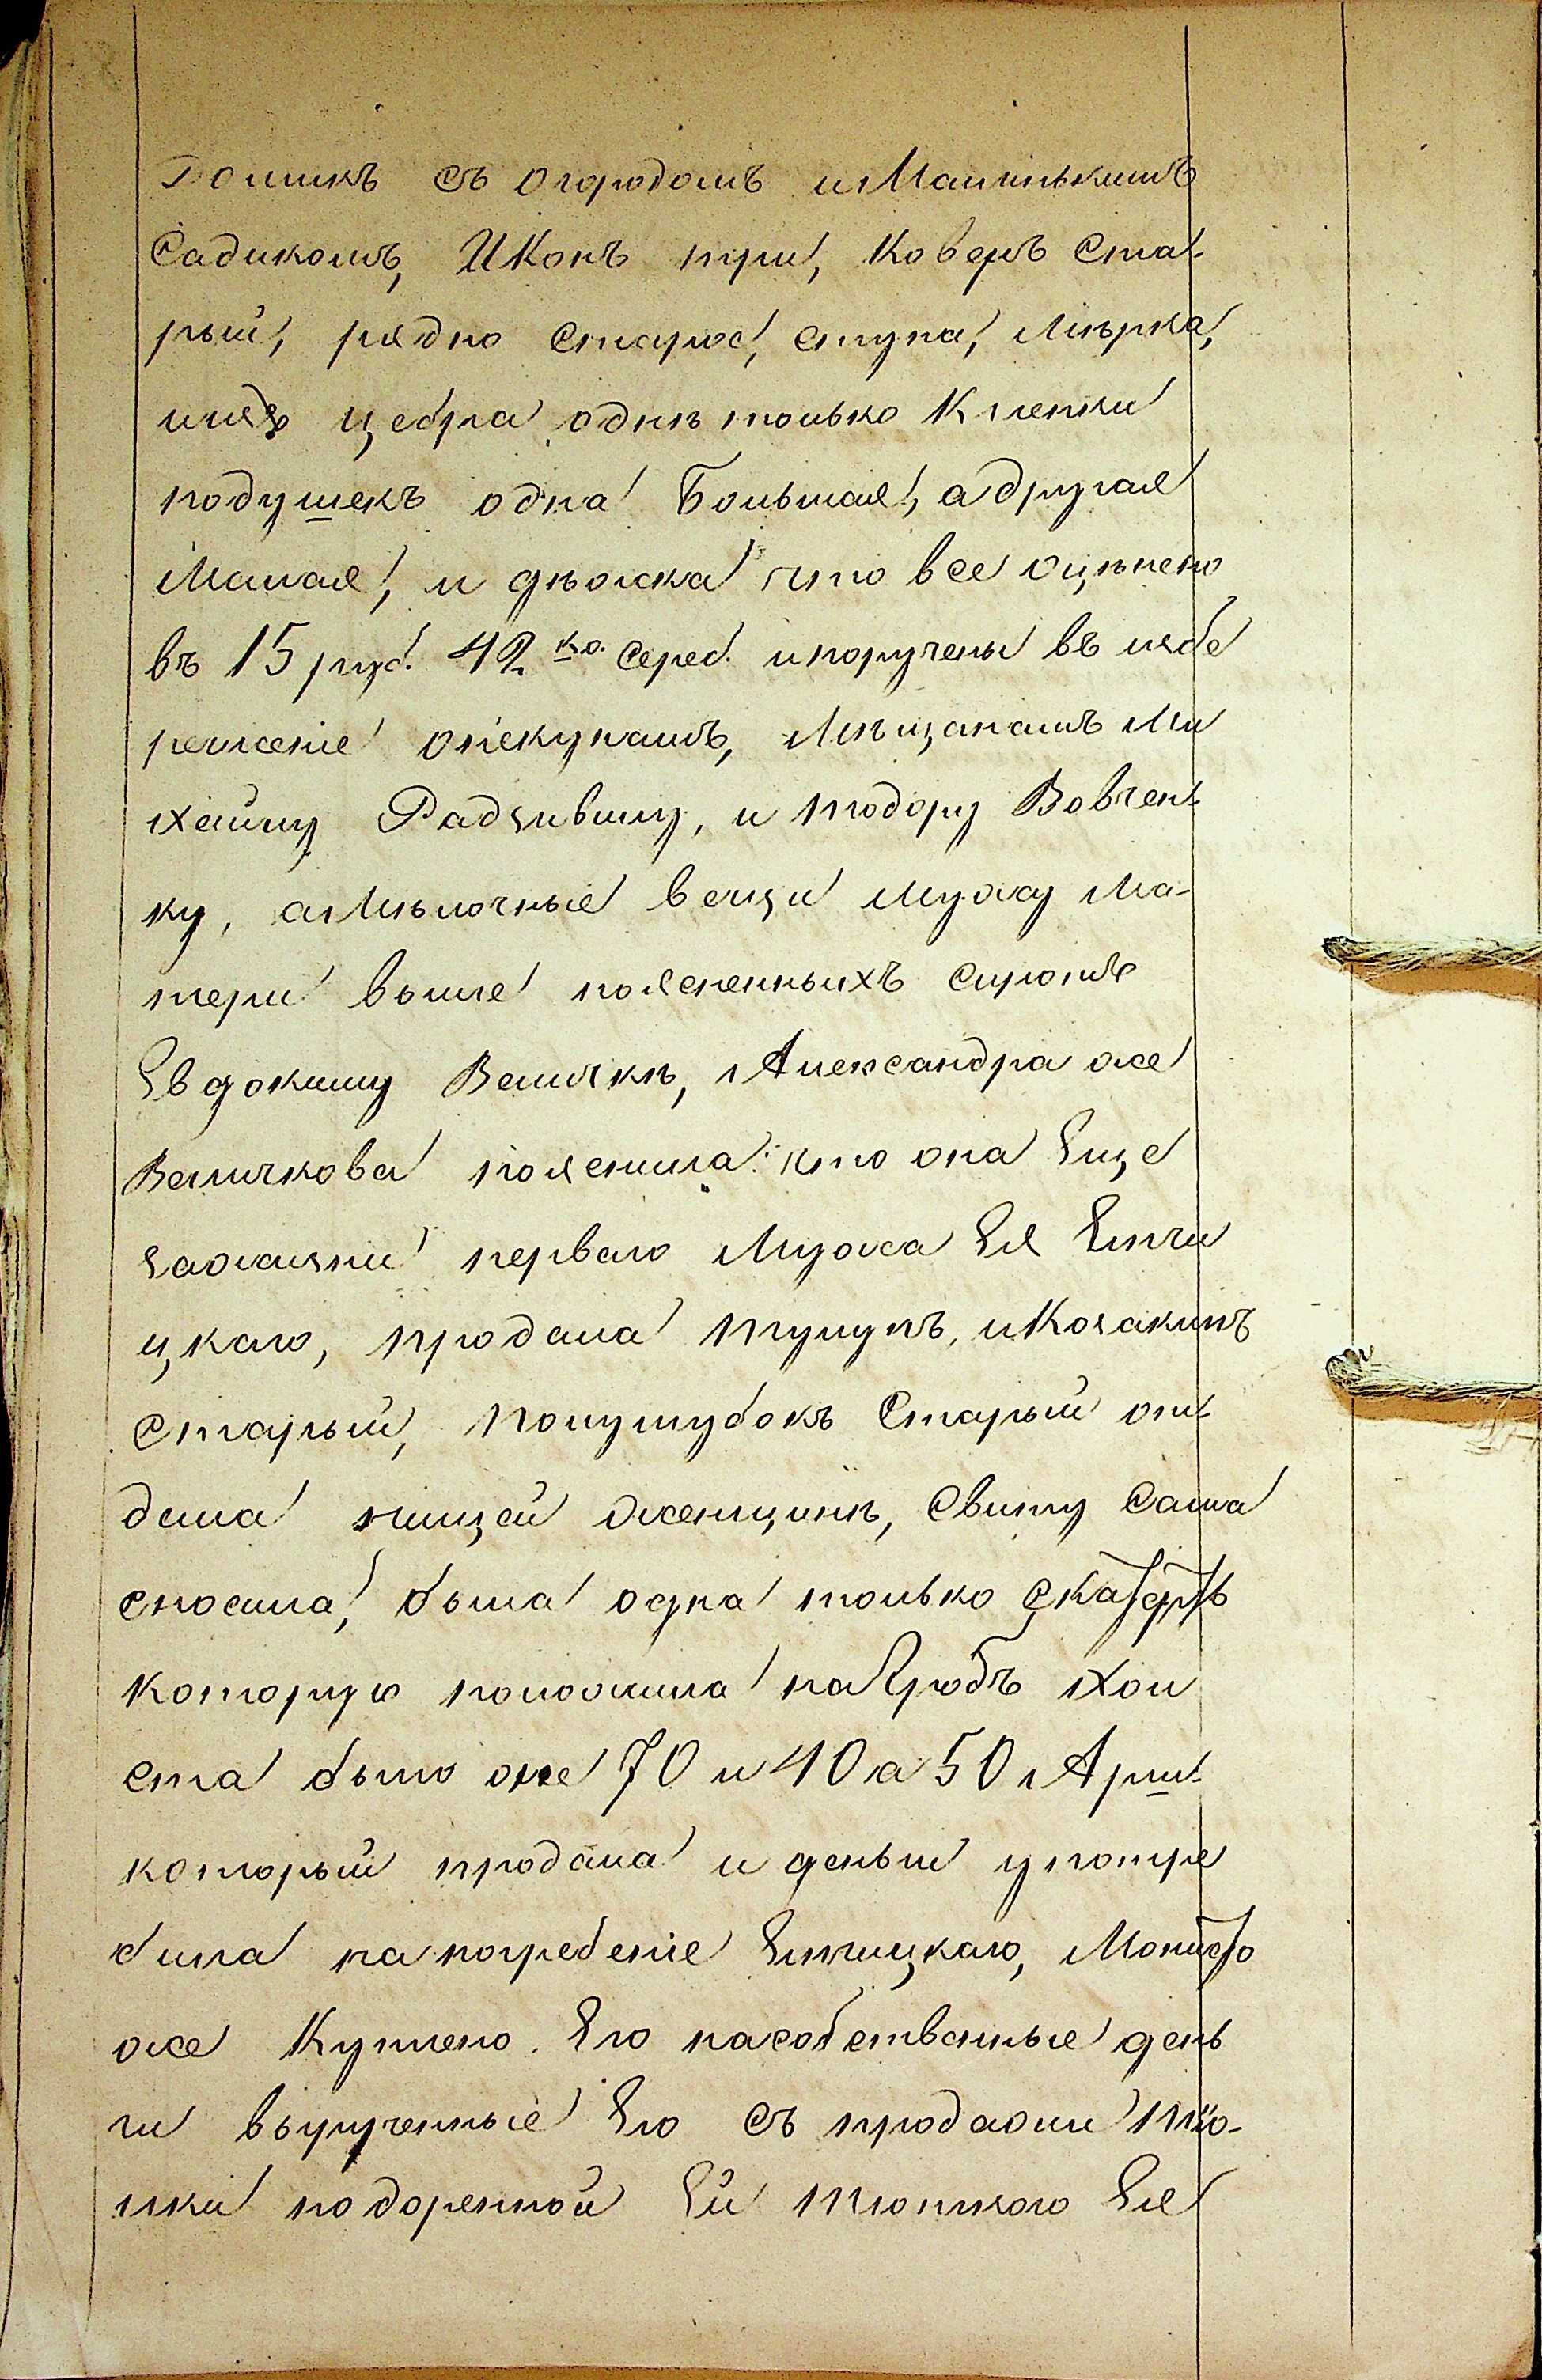 Домикъ съ огородомъ и Малинькимъ
Садикомъ, Иконъ три, Коверъ Ста-
рый, рядно старое, ступа, Мѣрка,
изъ цебра однѣ только Клепки
подушекъ одна Большая, а другая
Малая, и дѣжка что все оцѣнено
въ 15 руб. 42 ко. сереб. и поручены въ избе
режение опекунамъ, Мѣщанамъ Ми
хайлу Радзивилу, и Тодору Вовчен-
ку, а Мѣлочные вещи Мужу Ма-
тери выше поясненныхъ сиротъ
Евдокиму Величкѣ, Александра же
Величкова пояснила: что она Еще
зажизни перваго Мужа Ея Ентчи
цкаго, продала тулупъ, и Козакинъ
старый, полушубокъ Старый от-
дала нищей женщинѣ, Свиту Сама
сносила, была одна только скатерть
которую положила на Гробъ Хол
ста было же 70 и 40 а 50 Арш-
который продала и деньги употре
била на погребение Ентчицкаго, Монисто
же Куплено Ею на собственные день
ги вырученные Ею съ продажи тіо-
лки подоренной Ей Ею